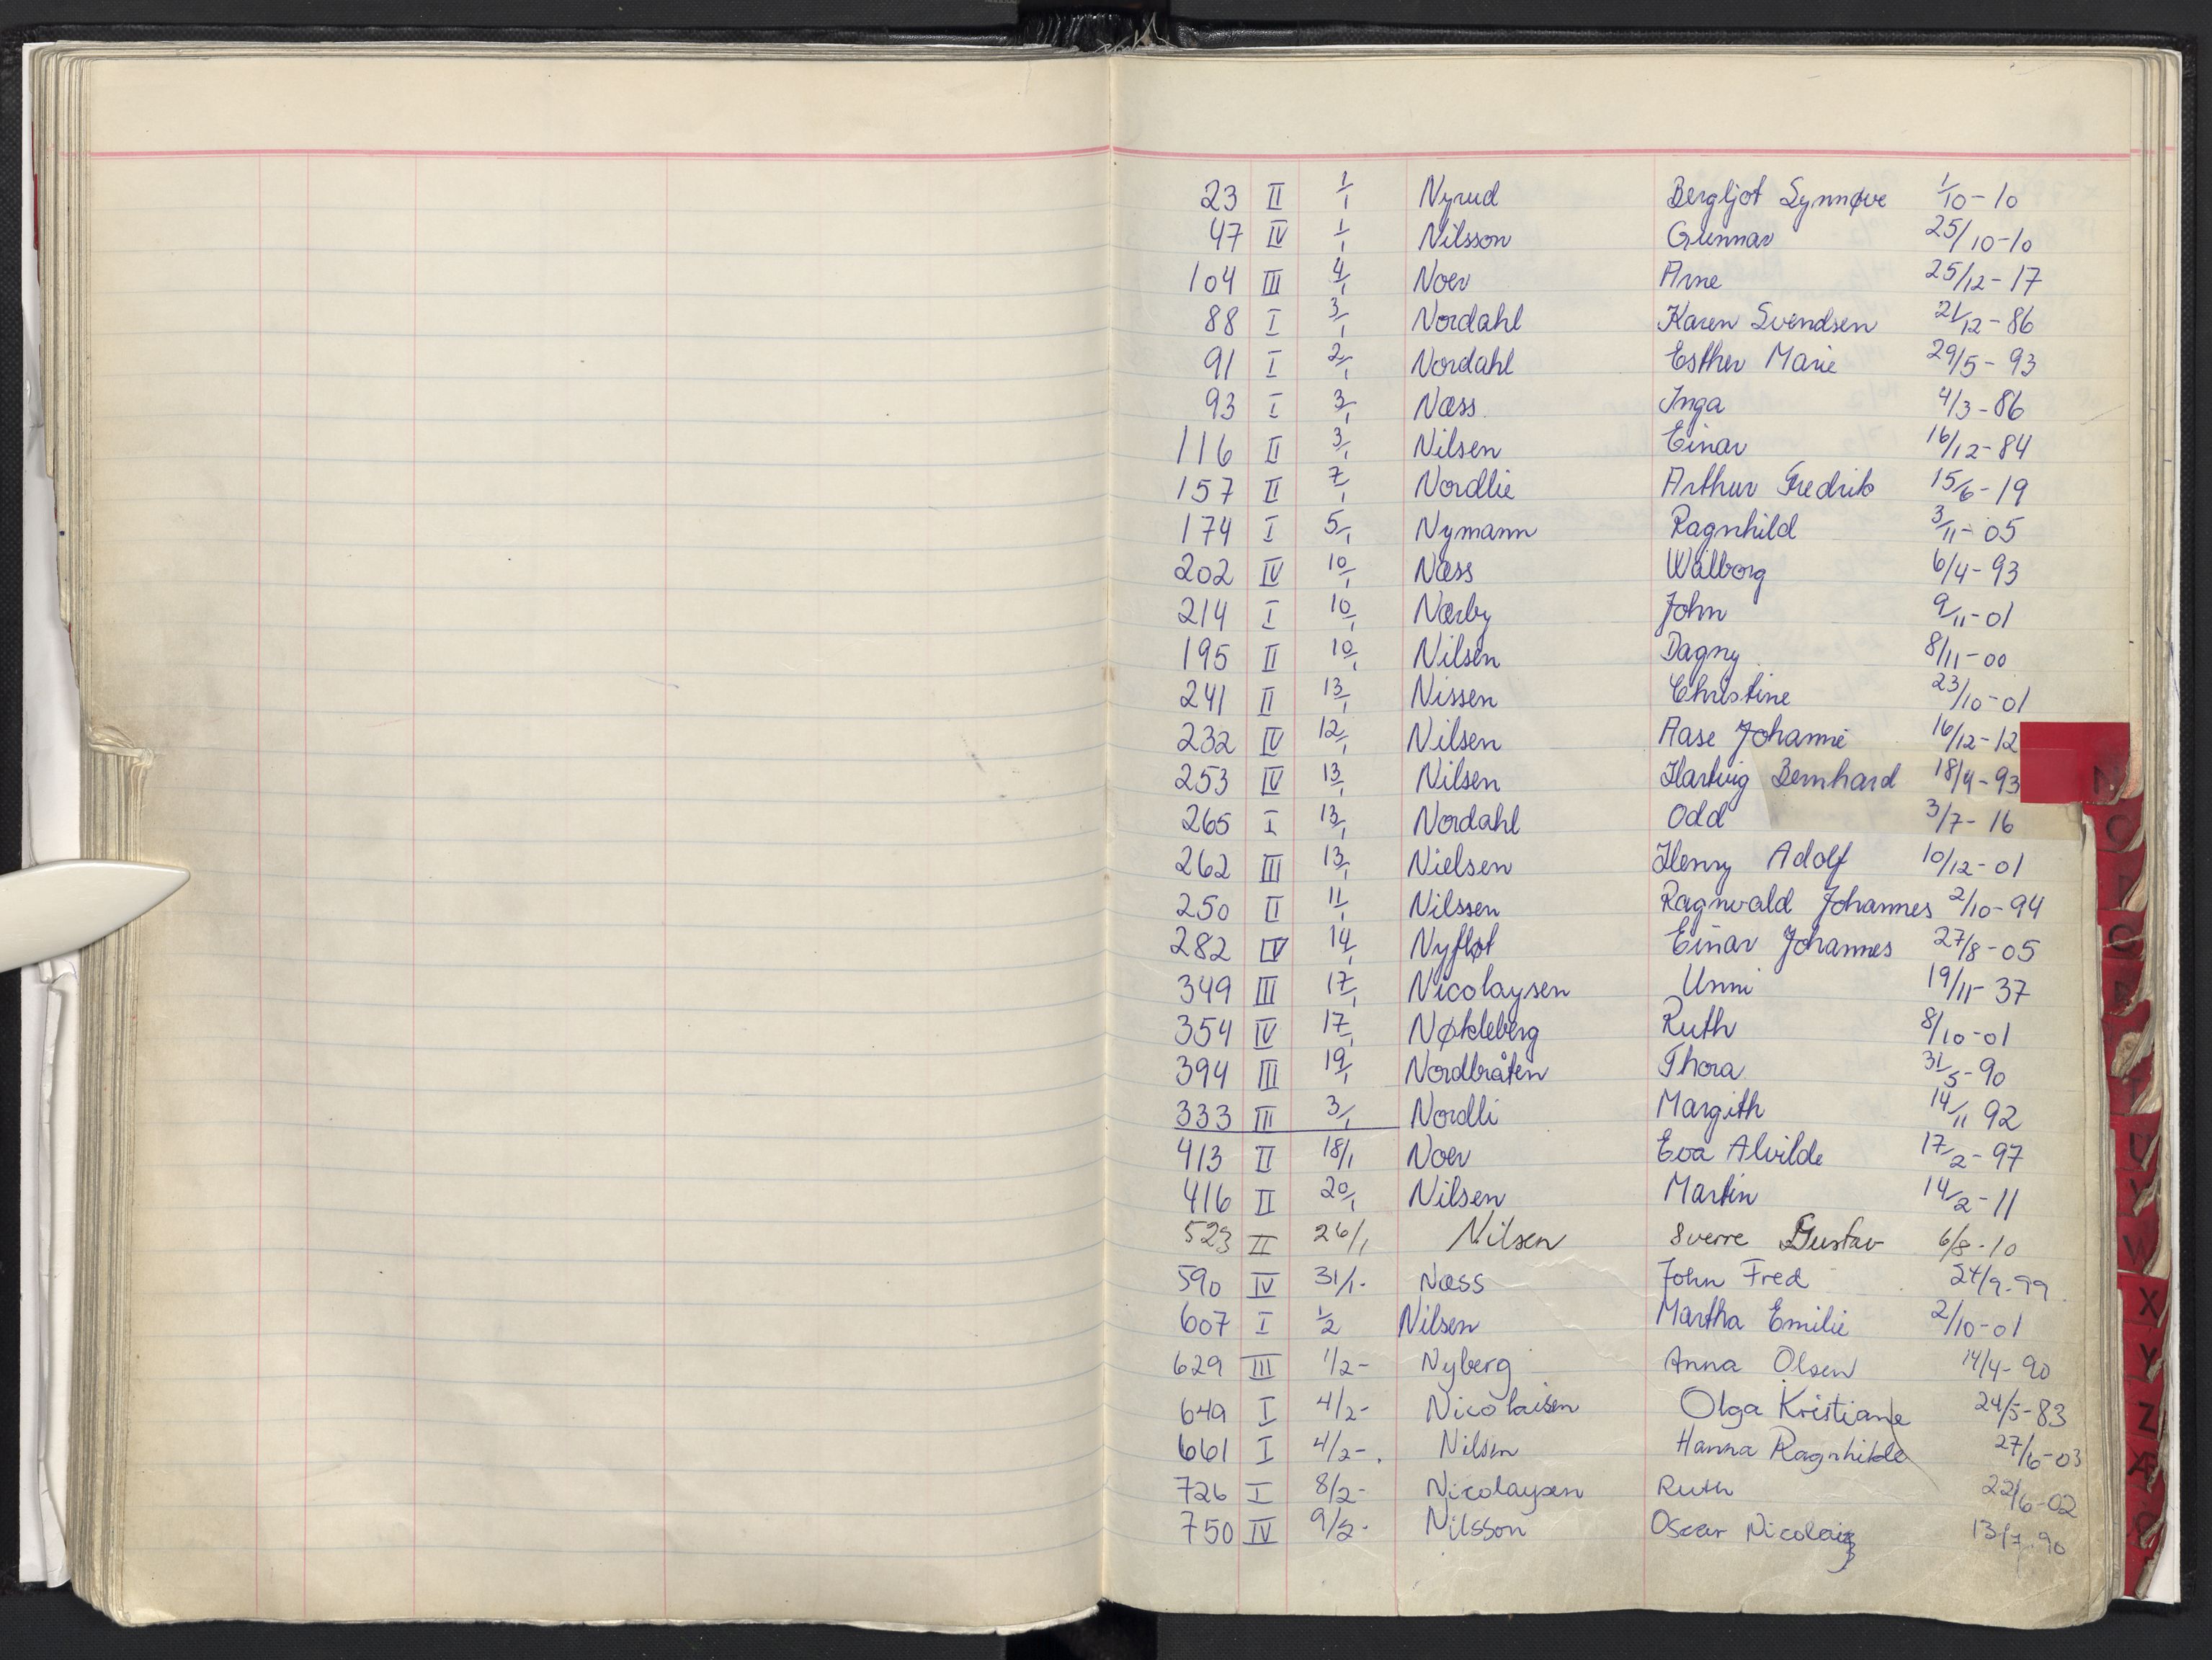 23 II 1/1 Nyrud Bergljot Synnøve 1/10-10
47 IV 1/1 Nilsson Gunnar 25/10-10
104 III 4/1 Noer Arne 25/12-17
88 I 3/1 Nordahl Karen Svendsen 21/12-86
91 I 2/1 Nordahl Esther Marie 29/5-93
93 I 3/1 Næss Inga 4/3-86
116 II 3/1 Nilsen Einar 16/12-84
157 II 7/1 Nordlie Arthur Fredrik 15/6-19
174 I 5/1 Nymann Ragnhild 3/11-05
202 IV 10/1 Næss Walborg 6/4-93
214 I 10/1 Nærby John 9/11-01
195 II 10/1 Nilsen Dagny 8/11-00
241 II 13/1 Nissen Christine 23/10-01
232 IV 12/1 Nilsen Aase Johanne 16/12-12
253 IV 13/1 Nilsen Hartvig Bernhard 18/9-93
N
265 I 13/1 Nordahl Odd 3/7-16
O
262 III 13/1 Nielsen Henry Adolf 10/12-01
250 II 11/1 Nilssen Ragnvald Johannes 2/10-94
282 IV 14/1 Nyfløt Einar Johannes 27/8-05
349 III 17/1 Nicolaysen Unni 19/11-37
354 IV 17/1 Nøkleberg Ruth 8/10-01
394 III 19/1 Nordbråten Thora 31/5-90
333 III 3/1 Nordli Margith 14/11 92
413 II 18/1 Noer Eva Alvilde 17/2-97
U
416 II 20/1 Nilsen Martin 14/2-11
V
523 II 26/1 Nilsen Sverre Gustav 6/8-10
W
590 IV 31/1- Næss John Fred 24/9-99
X
607 I 1/2 Nilsen Martha Emilie 2/10-01
629 III 1/2- Nyberg Anna Olsen 14/4-90
Y
649 I 4/2- Nicolaisen Olga Kristiane 24/5-83
Z
661 I 4/2- Nilsen Hanna Ragnhilde 27/6-03
Æ
726 I 8/2- Nicolaysen Ruth 22/6-02
750 IV 9/2- Nilsson Oscar Nicolai 13/7-90
Ø